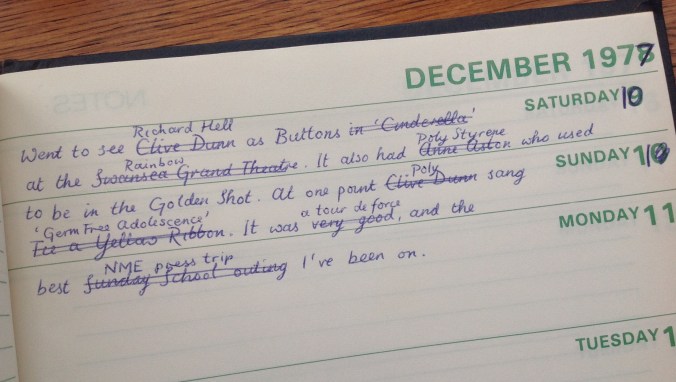 DECEMBER 1977
SATURDAY 10
Richard Hell
Went to see Clive Dunn as Buttons in 'Cinderella'
Rainbow Poly Styrene
at the Swansea Grand Theatre. It also had Anne Aston who used
SUNDAY
Poly
to be in the Golden Shot. At one point Clive Dunn sang
'Germ Free Adolescence' a tour de force
Tie a Yellow Ribbon. It was very good, and the
MONDAY 11
NME press trip
best Sunday School outing I've been on.
TUESDAY 1